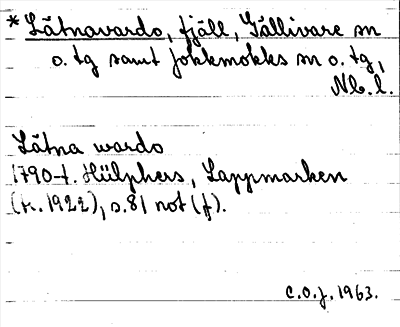 *Låtnavardo, fjäll, Gällivare sn
o. tg samt Jokkmokks sn o. tg,
Nb. l.
Låtna wardo
1790-t. Hülphers, Lappmarken
(tr. 1922), s. 81 not (f).
C.O.J. 1963.